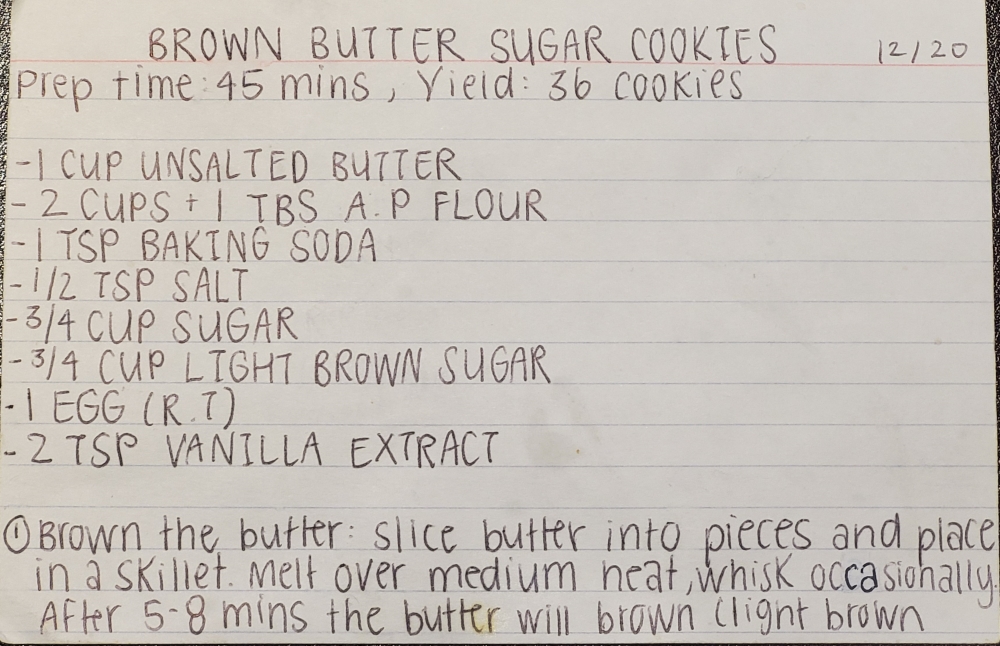 BROWN BUTTER SUGAR COOKIES 12/20
Prep time: 45 mins, Yield: 36 cookies
-1 CUP UNSALTED BUTTER
- 2 CUPS + 1 TBS A.P FLOUR
-1 TSP BAKING SODA
-1/2 TSP SALT
-3/4 CUP SUGAR
-3/4 CUP LIGHT BROWN SUGAR
-1 EGG (R.T)
- 2 TSP VANILLA EXTRACT
① Brown the butter: slice butter into pieces and place
in a skillet. Melt over medium heat, whisk occasionally.
After 5-8 mins the butter will brown (light brown